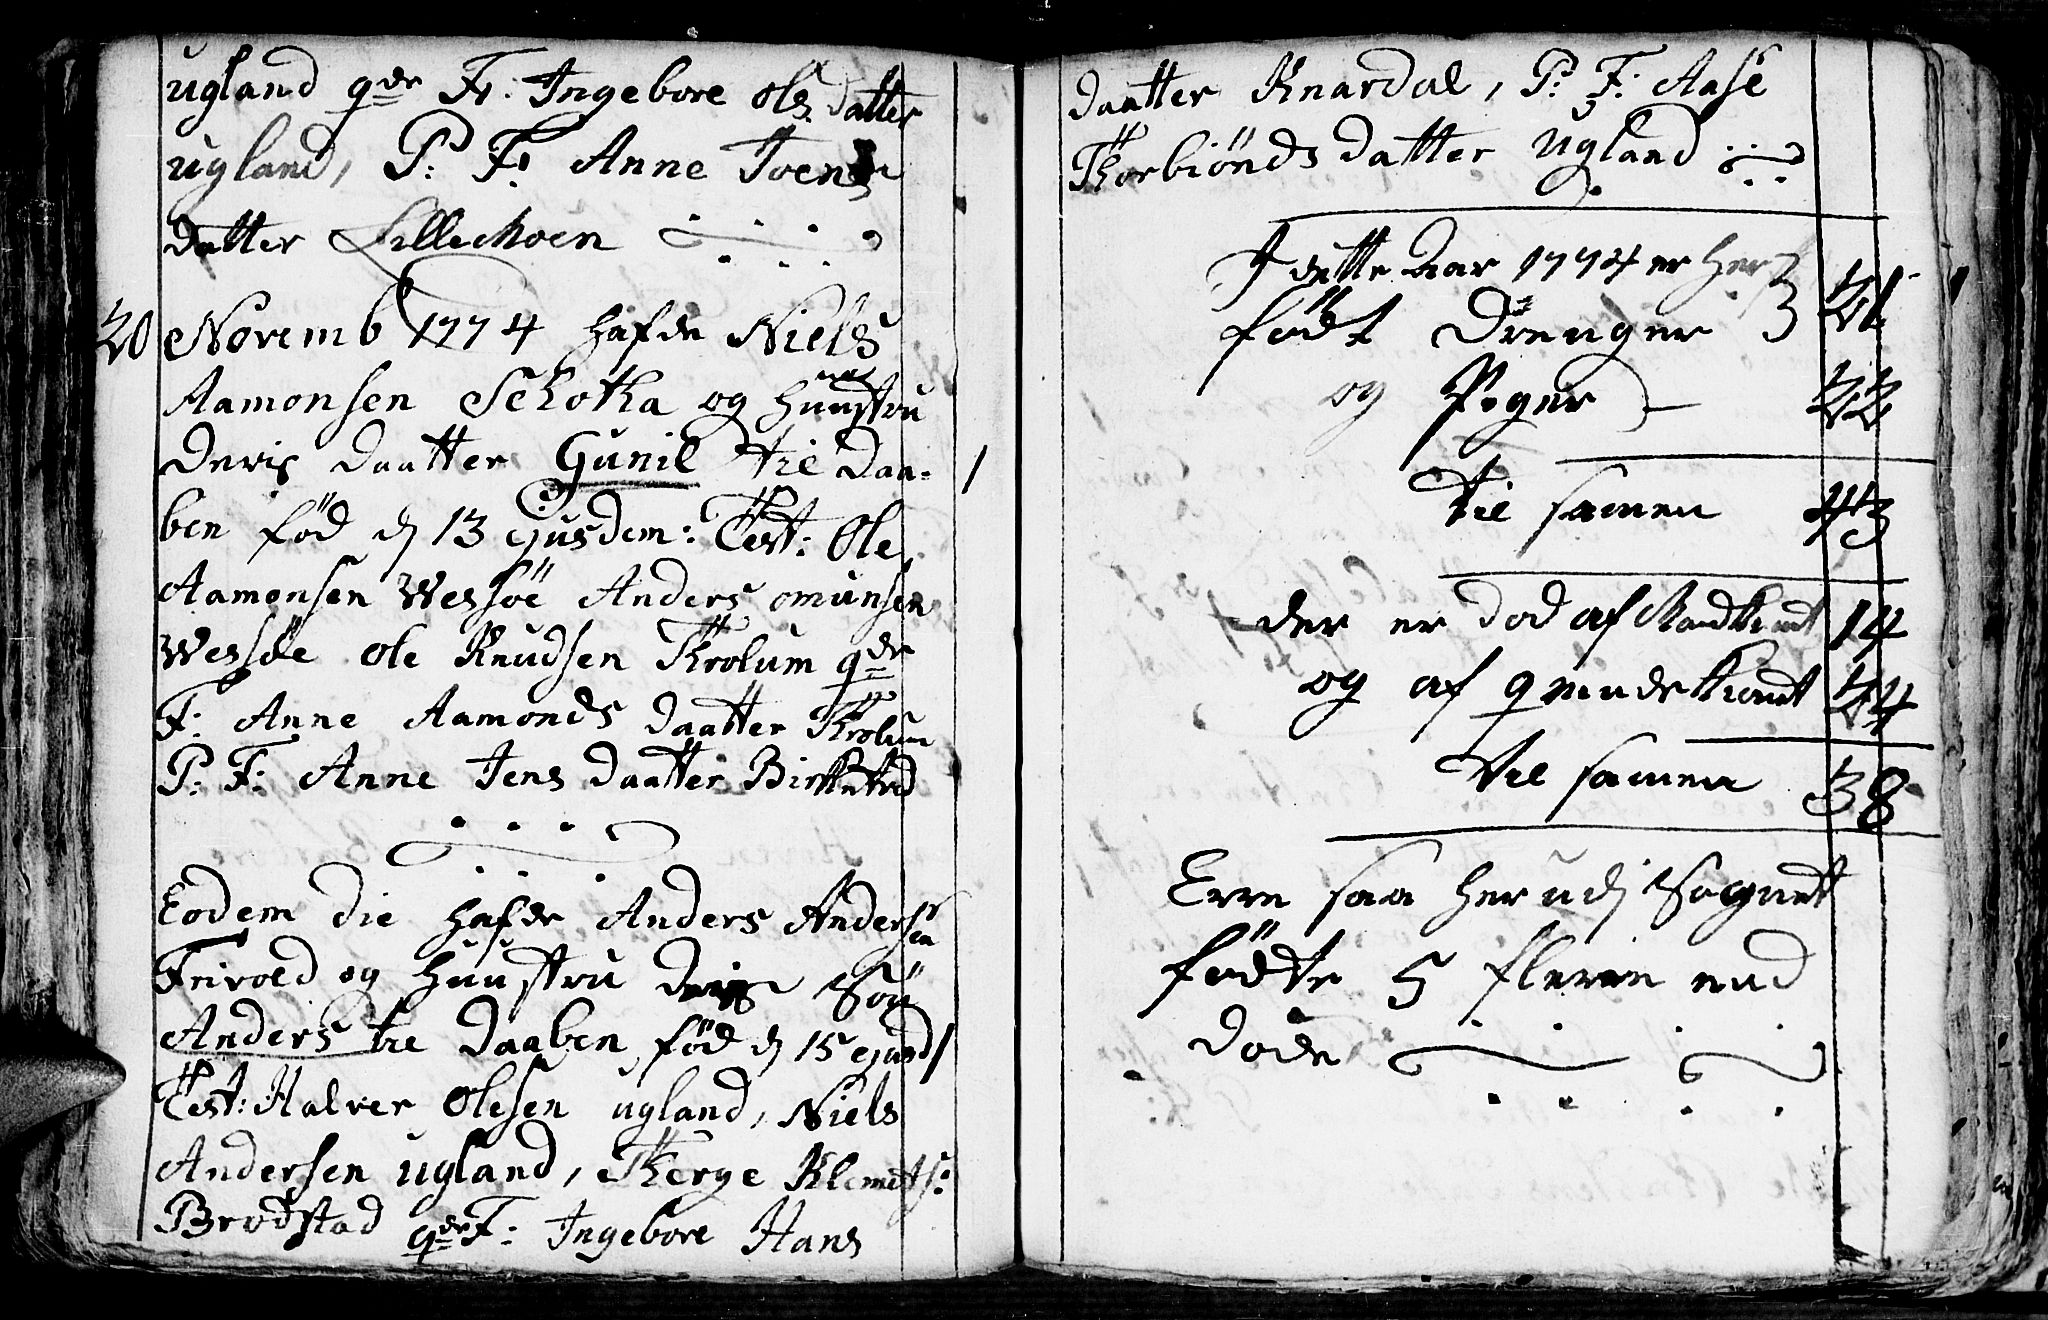 ugland qde F: Ingebore Ols datter
ugland, P: F: Anne Toens
datter Lillechoen
20 Novemb 1774 hafde Niels
Aamonsen Schotha og huustru
Deris daatter Gunil til Daa-
ben föd d 13 ejusdem: Test: Ole
Aamonsen Wessöe Anders omunsen
Wessöe Ole Knudsen Throlum qde
F: Anne Aamonds daatter Throlum
P: F: Anne Jens daatter Birketved
Eodem die hafde Anders Andersen
Frivold og huustru Deris Sön
Anders til Daaben föd d 15 ejusd
Test: Halver Olesen ugland, Niels
Andersen ugland, Therge Klemets:
Brodstad qde F: Ingebore Hans
1
daatter Knardal, P: F: Aase
Thorbiönds datter Ugland
I dette Aar 1774 er her
födt Drenger 21
og Piger 22
til samen 43
der er död af Mandkiönt 14
og af qvindekiönt 24
til samen 38
Erre saa her udj Sognet
födte 5 flerre end
döde